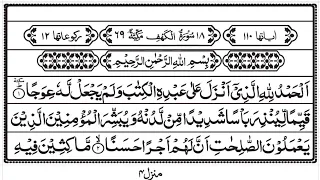 اٰیاتها ۱۱۰ ۱۸ سُوْرَةُ الْكَهْفِ مَكِّیَّةٌ ۶۹ رکوعاتها ۱۲
بِسْمِ اللّٰهِ الرَّحْمٰنِ الرَّحِیْمِ
اَلْحَمْدُ لِلّٰهِ الَّذِیْۤ اَنْزَلَ عَلٰی عَبْدِهِ الْكِتٰبَ وَ لَمْ یَجْعَلْ لَّهٗ عِوَجًا ۱
قَیِّمًا لِّیُنْذِرَ بَاْسًا شَدِیْدًا مِّنْ لَّدُنْهُ وَ یُبَشِّرَ الْمُؤْمِنِیْنَ الَّذِیْنَ
یَعْمَلُوْنَ الصّٰلِحٰتِ اَنَّ لَهُمْ اَجْرًا حَسَنًا ۲ مَّاكِثِیْنَ فِیْهِ
منزل ۴